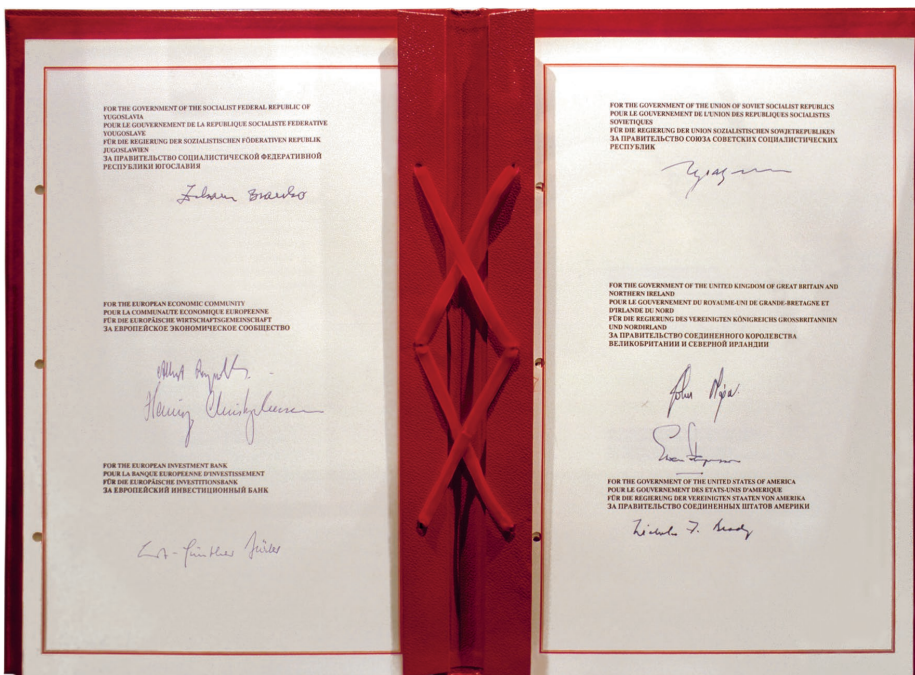 FOR THE GOVERNMENT OF THE SOCIALIST FEDERAL REPUBLIC OF
YUGOSLAVIA
POUR LE GOUVERNEMENT DE LA REPUBLIQUE SOCIALISTE FEDERATIVE
YOUGOSLAVE
FÜR DIE REGIERUNG DER SOZIALISTISCHEN FÖDERATIVEN REPUBLIK
JUGOSLAWIEN
ЗА ПРАВИТЕЛЬСТВО СОЦИАЛИСТИЧЕСКОЙ ФЕДЕРАТИВНОЙ
РЕСПУБЛИКИ ЮГОСЛАВИЯ
FOR THE EUROPEAN ECONOMIC COMMUNITY
POUR LA COMMUNAUTE ECONOMIQUE EUROPEENNE
FÜR DIE EUROPÄISCHE WIRTSCHAFTSGEMEINSCHAFT
ЗА ЕВРОПЕЙСКОЕ ЭКОНОМИЧЕСКОЕ СООБЩЕСТВО
Henning Christophersen
FOR THE EUROPEAN INVESTMENT BANK
POUR LA BANQUE EUROPEENNE D'INVESTISSEMENT
FÜR DIE EUROPÄISCHE INVESTITIONSBANK
ЗА ЕВРОПЕЙСКИЙ ИНВЕСТИЦИОННЫЙ БАНК
FOR THE GOVERNMENT OF THE UNION OF SOVIET SOCIALIST REPUBLICS
POUR LE GOUVERNEMENT DE L'UNION DES REPUBLIQUES SOCIALISTES
SOVIETIQUES
FÜR DIE REGIERUNG DER UNION SOZIALISTISCHEN SOWJETREPUBLIKEN
ЗА ПРАВИТЕЛЬСТВО СОЮЗА СОВЕТСКИХ СОЦИАЛИСТИЧЕСКИХ
РЕСПУБЛИК
FOR THE GOVERNMENT OF THE UNITED KINGDOM OF GREAT BRITAIN AND
NORTHERN IRELAND
POUR LE GOUVERNEMENT DU ROYAUME-UNI DE GRANDE-BRETAGNE ET
D'IRLANDE DU NORD
FÜR DIE REGIERUNG DES VEREINIGTEN KÖNIGREICHS GROSSBRITANNIEN
UND NORDIRLAND
ЗА ПРАВИТЕЛЬСТВО СОЕДИНЕННОГО КОРОЛЕВСТВА
ВЕЛИКОБРИТАНИИ И СЕВЕРНОЙ ИРЛАНДИИ
John Major
FOR THE GOVERNMENT OF THE UNITED STATES OF AMERICA
POUR LE GOUVERNEMENT DES ETATS-UNIS D'AMERIQUE
FÜR DIE REGIERUNG DER VEREINIGTEN STAATEN VON AMERIKA
ЗА ПРАВИТЕЛЬСТВО СОЕДИНЕННЫХ ШТАТОВ АМЕРИКИ
Nicholas F. Brady